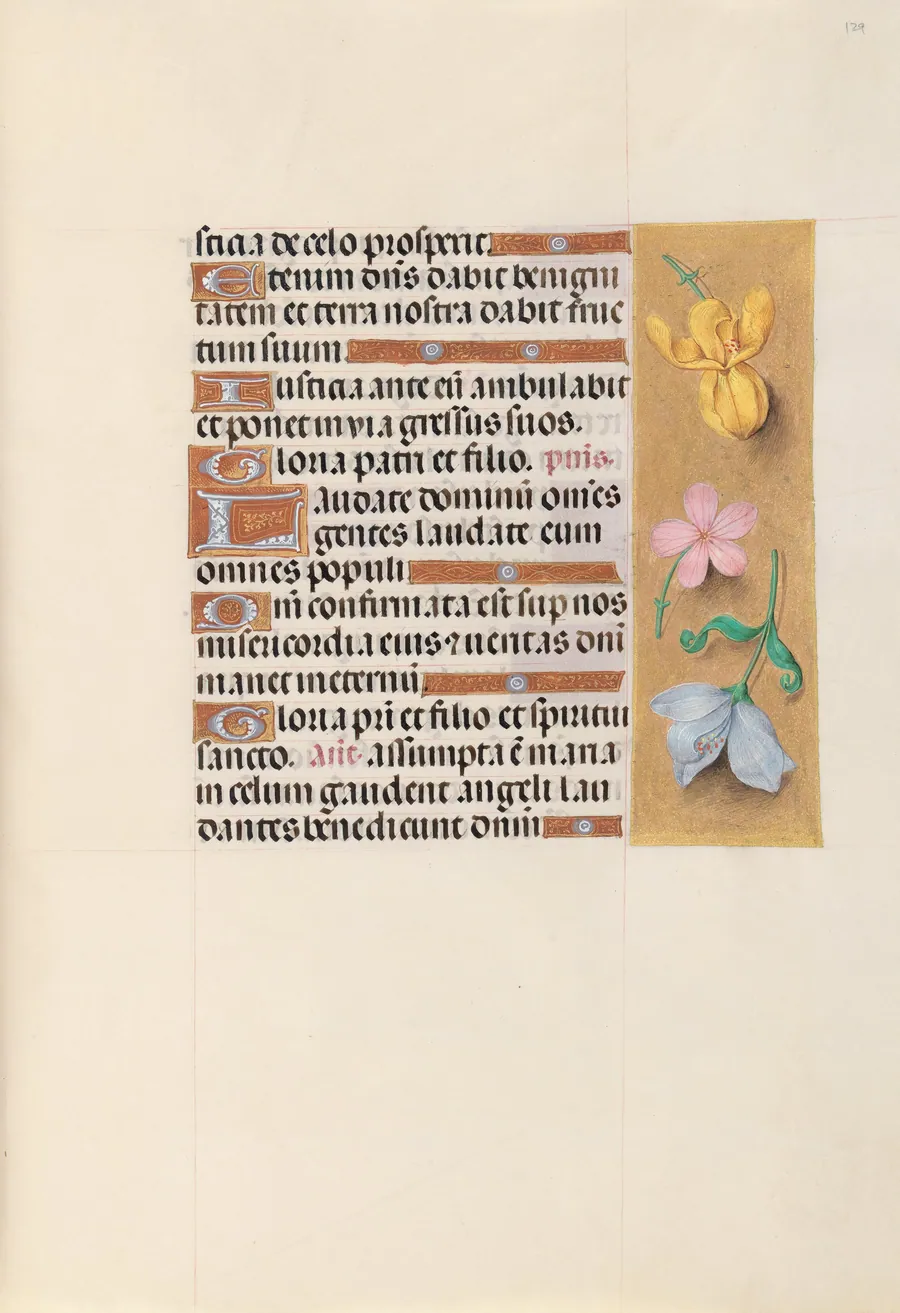 129
sticia de celo prosperit.
Etenim dn̄s dabit benigni
tatem et terra nostra dabit fruc
tum suum.
Iusticia ante eū ambulabit
et ponet in via gressus suos.
Gloria patri et filio. ps̄ius.
Laudate dominū om̄es
gentes laudate eum
omnes populi.
Qm̄ confirmata est sup nos
misericordia eius ⁊ ueritas dn̄i
manet in eternū.
Gloria pr̄i et filio et spiritui
sancto. Añt. assumpta ē maria
in celum gaudent angeli lau
dantes benedicunt dn̄m